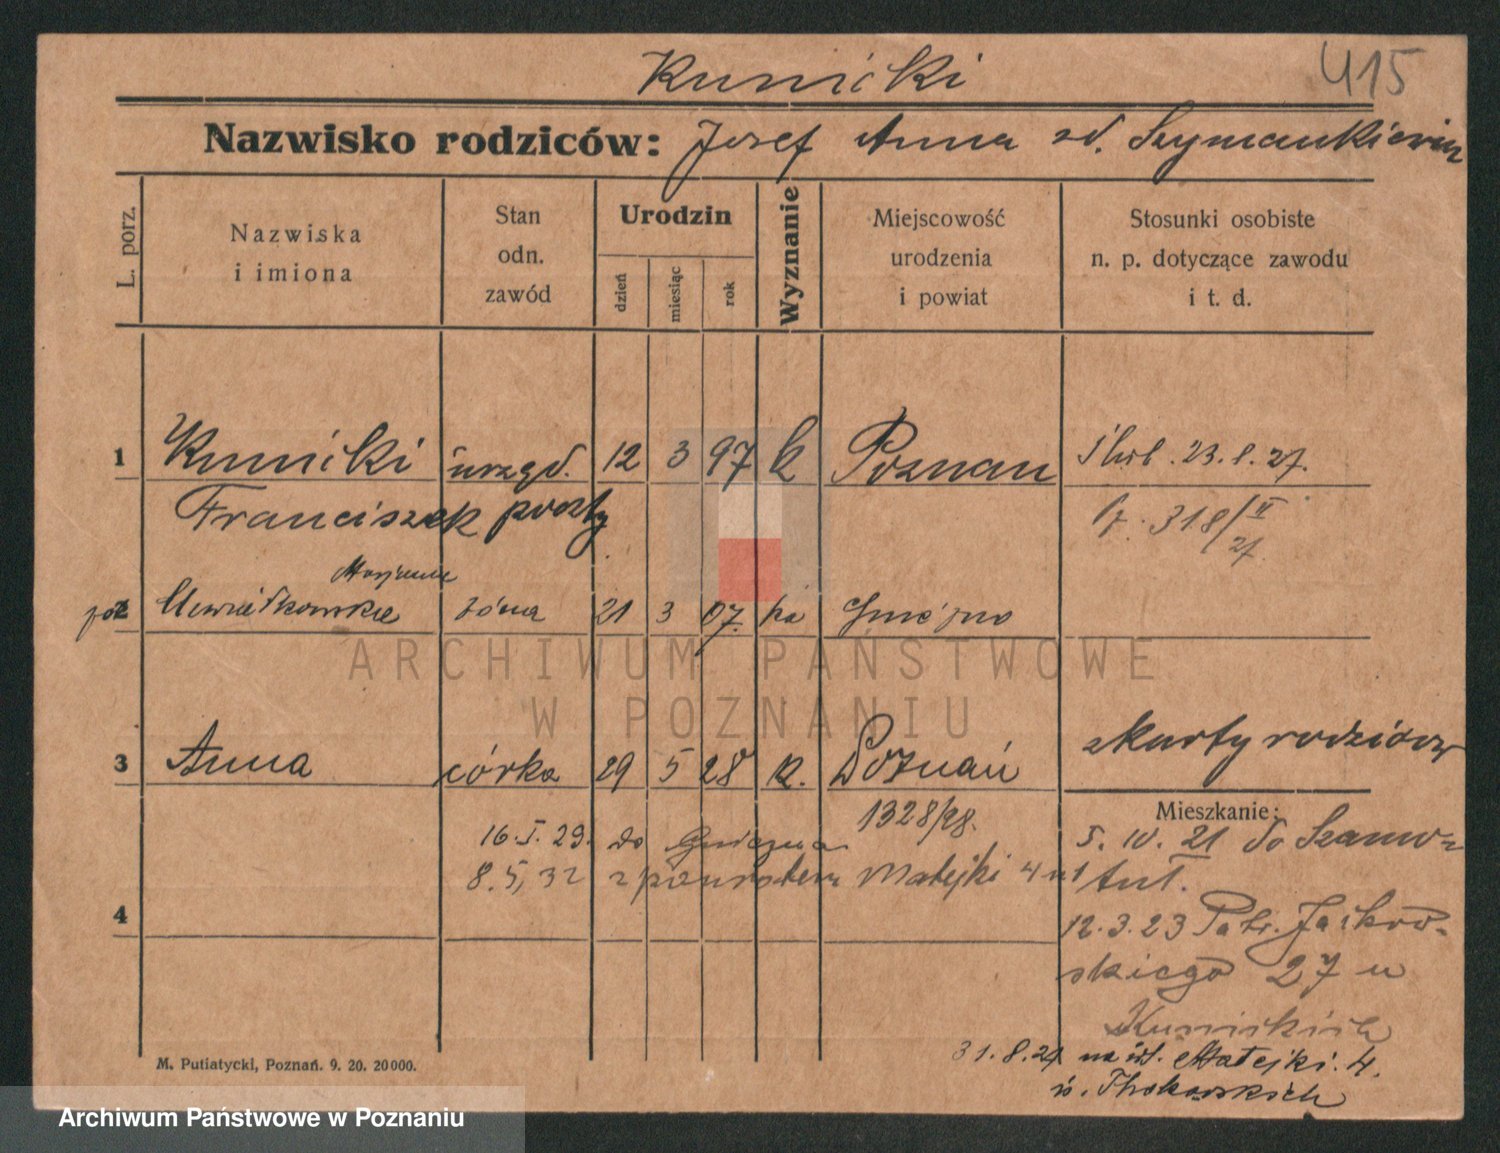 Kunicki 415
Nazwisko rodziców: Józef Anna zd. Szymankiewicz
L. porz.
Nazwiska
i imiona
Stan
odn.
zawód
Urodzin
dzień
miesiąc
rok
Wyznanie
Miejscowość
urodzenia
i powiat
Stosunki osobiste
n. p. dotyczące zawodu
i t. d.
1 Kunicki urzęd. 12 3 97 k Poznań 23. 27.
Franciszek poczty 318/II
27.
Marjanna
2 żona 21 3 07. ka
ARCHIWUM PAŃSTWOWE
W POZNANIU
3 Anna córka 29 5 28 k. Poznań z karty rodziców
1328/28.
Mieszkanie:
16. I. 29. do Gniezna
5. IV. 21 do Szamo-
tuł.
8.5,32 z powrotem Matejki 4
4
12.3.23 Patr. Jackow-
skiego 27 u
Kunickich
31.8.27 na ul. Matejki. 4.
M. Putiatycki, Poznań. 9. 20. 20000.
Archiwum Państwowe w Poznaniu